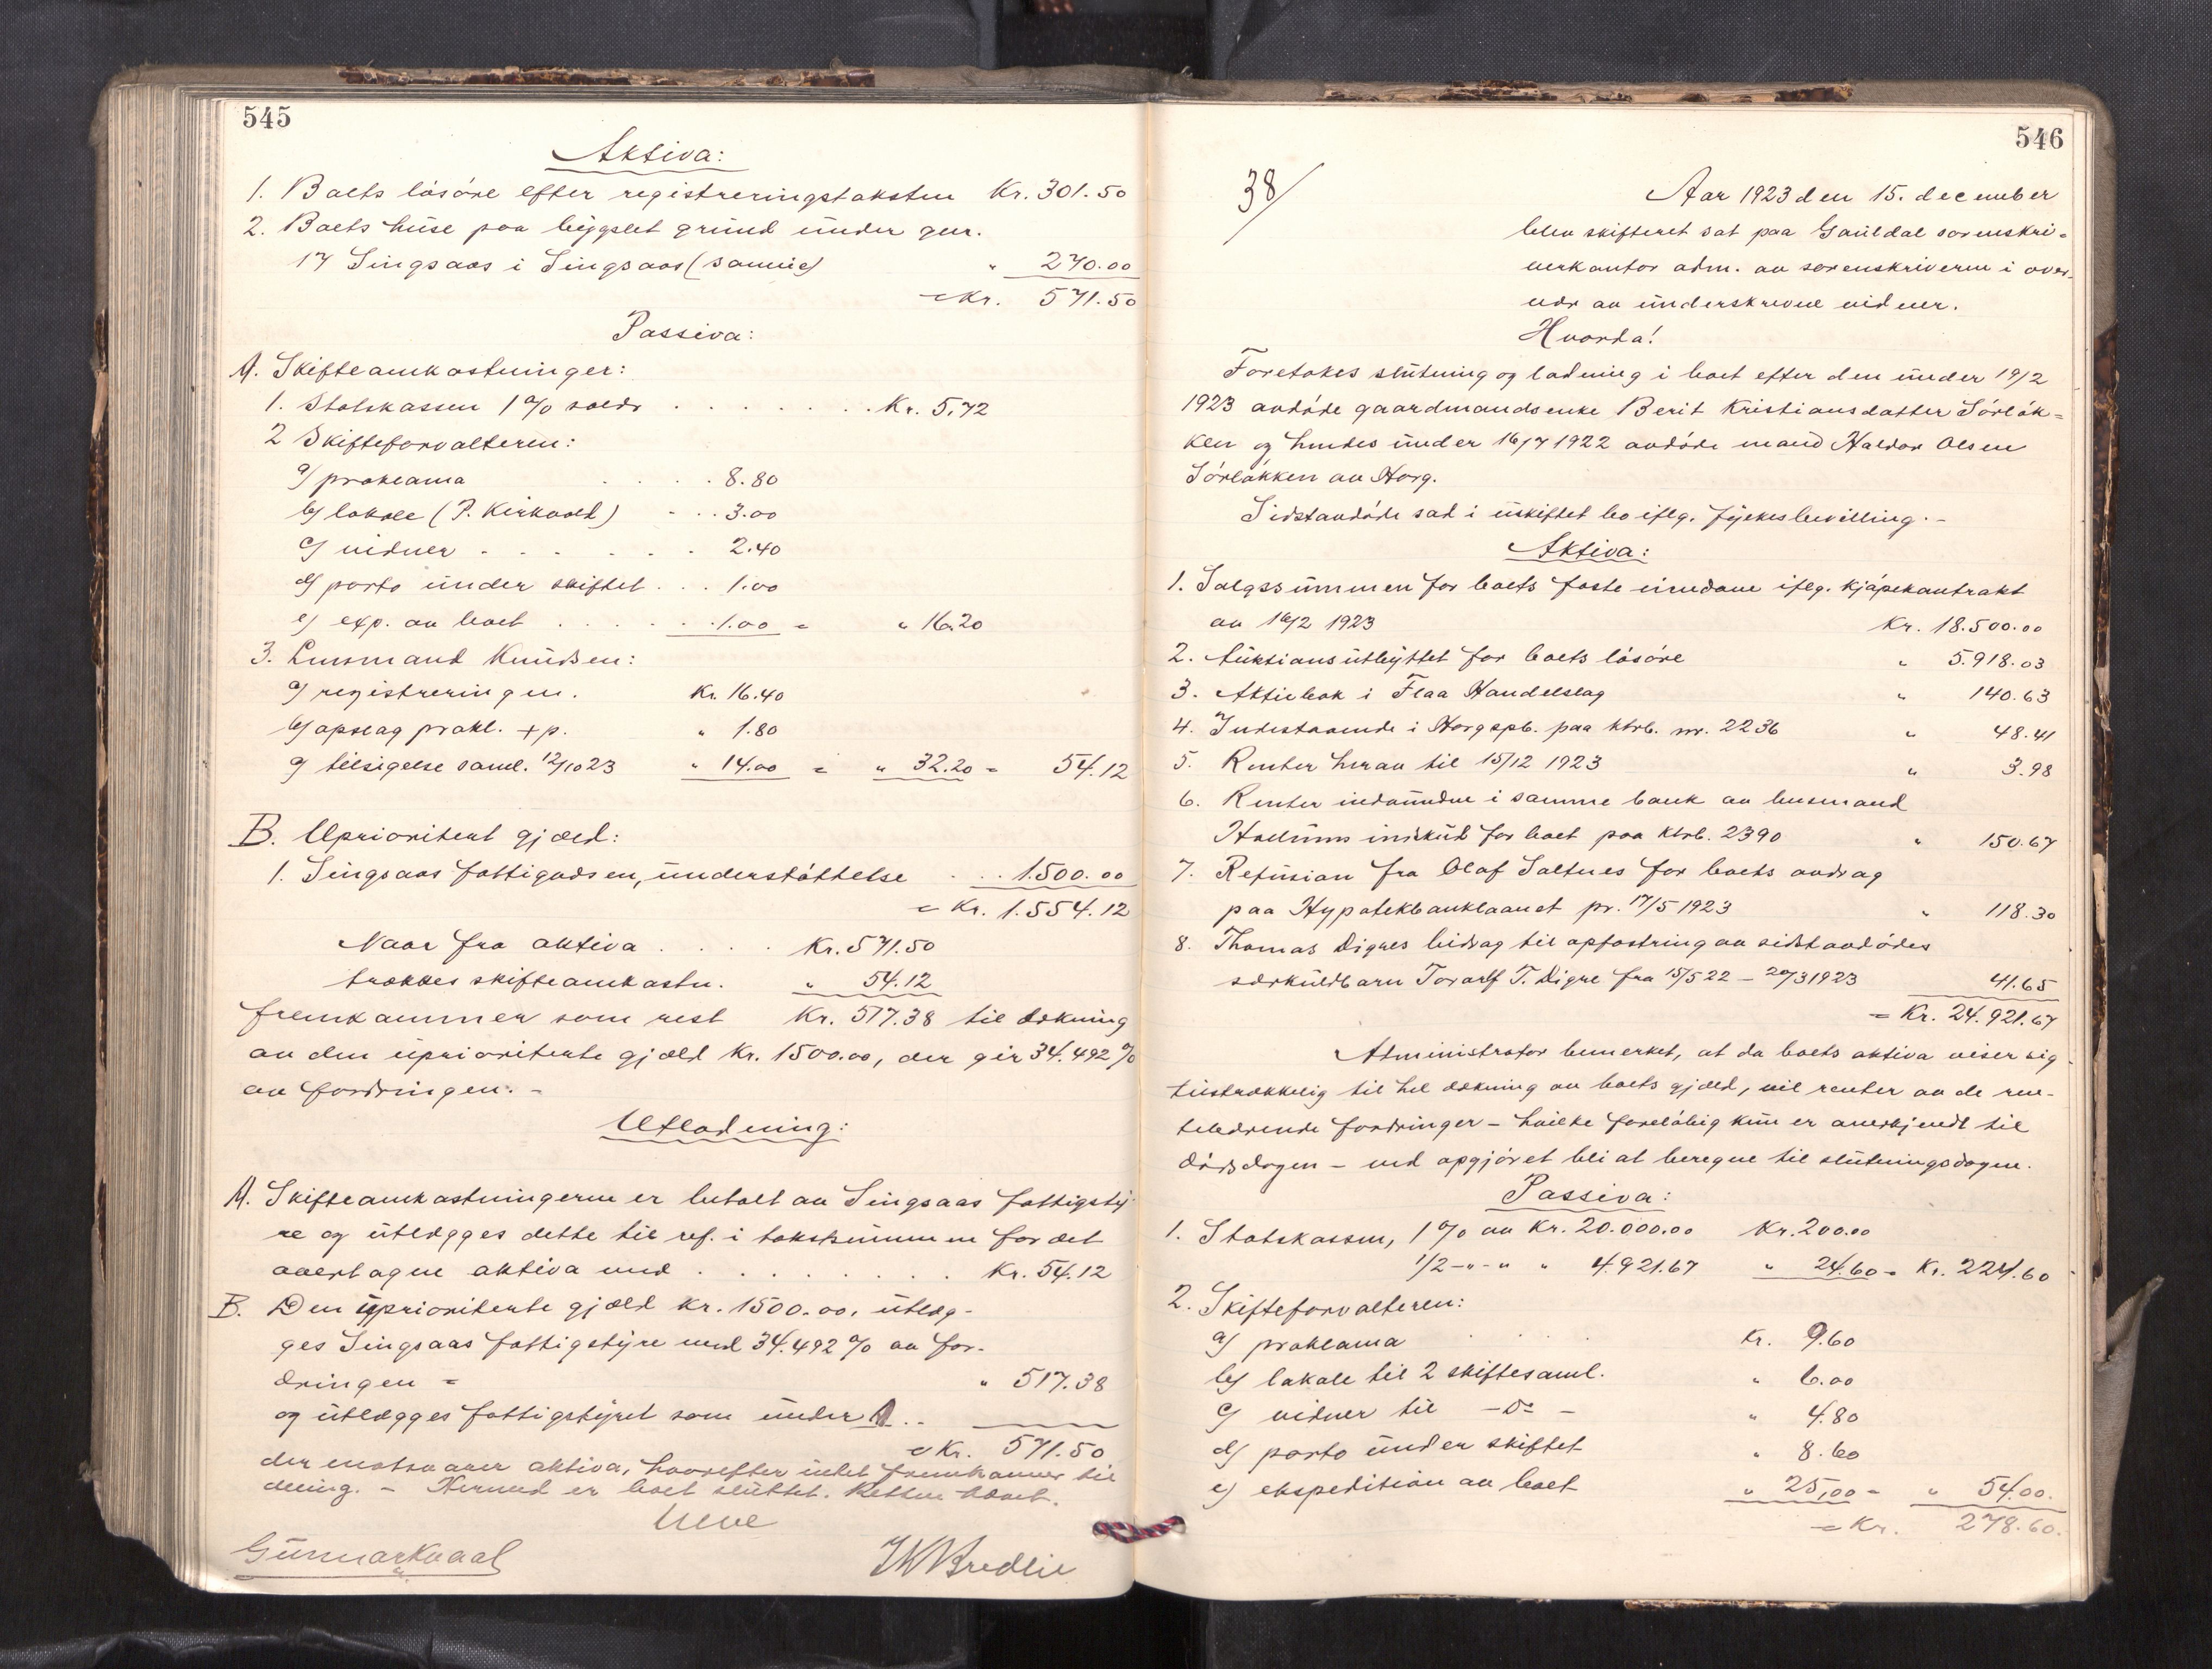 545
Aktiva:
1. Boets løsøre efter registreringstaksten Kr. 301.50
2. Boets huse paa bygslet grund under gnr.
17 Singsaas i Singsaas (samme) " 270.00
= Kr. 571.50
Passiva:
A. Skifteomkostninger:
1. Statskassen 1% soldo . . . . . . . Kr. 5.72
2 Skifteforvalteren:
a) proklama . . . 8.80
b) lokale (P. Kirkvold) . . . 3.00
c) vidner . . . . . . 2.40
d) porto under skiftet . . . 1.00
e) exp. av boet . . . . . 1.00 = " 16.20
3. Lensmand Knudsen:
a) registreringen. Kr. 16.40
b) opslag prokl. + p. " 1.80
c) tilsigelse saml. 12/10 23 " 14.00 = " 32.20 = 54.12
B. Uprioritert gjæld:
1. Singsaas fattigvæsen, understøttelse . . . 1500.00
= Kr. 1.554.12
Naar fra aktiva . . . . Kr. 571.50
trækkes skifteomkostn. " 54.12
fremkommer som rest Kr. 517.38 til dækning
av den uprioriterte gjæld Kr. 1500.00, der gir 34.492 %
av fordringen. -
Utlodning:
A. Skifteomkostningerne er betalt av Singsaas fattigsty-
re og utlægges dette til ref. i takstsummen for det
overtagne aktiva med . . . . . . . . Kr. 54.12
B. Den uprioriterte gjæld Kr. 1500.00, utlæg-
ges Singsaas fattigstyre med 34.492 % av for-
dringen = " 517.38
og utlægges fattigstyret som under A. .
= Kr. 571.50
der motsvarer aktiva, hvorefter intet fremkommer til
deling. - Hermed er boet sluttet. Retten hævet.
Gunnar Kvaal
546
38/
Aar 1923 den 15. december
blev skifteret sat paa Gauldal sorenskri-
verkontor adm. av sorenskriveren i over-
vær av underskrevne vidner.
Hvorda!
Foretokes slutning og lodning i boet efter den under 19/2
1923 avdøde gaardmandsenke Berit Kristiansdatter Sørløk-
ken og hendes under 16/7 1922 avdøde mand Haldor Olsen
Sørløkken av Horg.
Sidstavdøde sad i uskiftet bo iflg. fylkesbevilling. -
Aktiva:
1. Salgssummen for boets faste eiendom iflg. kjøpekontrakt
av 16/2 1923 Kr. 18.500.00
2. Auktionsutbyttet for boets løsøre " 5.918.03
3. Aktiebok i Flaa Handelslag " 140.63
4. Indestaaende i Horg spb. paa ktrb. nr. 2236 " 48.41
5. Renter herav til 15/12 1923 " 3.98
6. Renter indvundne i samme bank av lensmand
indskud for boet paa ktrb. 2390 " 150.67
7. Refusion fra Olaf Saltnes for boets avdrag
paa Hypotekbanklaanet pr. 17/5 1923 " 118.30
8. Thomas Digres bidrag til opfostring av sidstavdødes
særkuldbarn Toralf T. Digre fra 15/5 22 - 20/3 1923 41.65
= Kr. 24.921.67
Administrator bemerket, at da boets aktiva viser sig
tilstrækkelig til hel dækning av boets gjæld, vil renter av de ren-
tebærende fordringer - hvilke foreløbig kun er anerkjendt til
dødsdagen - ved opgjøret bli at beregne til slutningsdagen.
Passiva:
1. Statskassen, 1% av Kr. 20.000.00 Kr. 200.00
1/2 - " - " " 4.921.67 " 24.60 = Kr. 224.60
2. Skifteforvalteren:
a) proklama . . . . Kr. 9.60
b) lokale til 2 skiftesaml. " 6.00
c) vidner til - Do - " 4.80
d) porto under skiftet " 8.60
e) ekspedition av boet " 25,00 = " 54.00.
= Kr. 278.60.